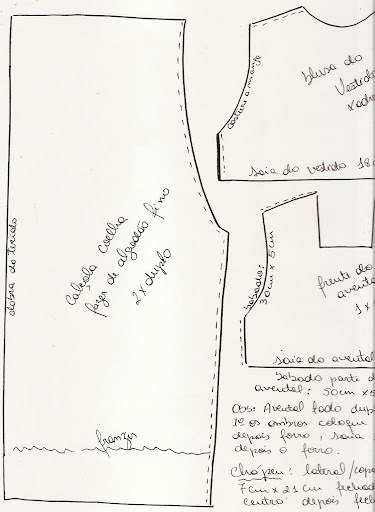 dobra do tecido
Calçola Coelha
fazer de algodão fino
2x duplo
franzir
blusa do
Vestido
xadre
costura a manga
saia do vestido 18c
babado:
30cm x 5cm
frente do
avental
1x
saia do avental
babado parte d
avental: 50cm x 5
Obs: Avental todo dupl
1º os ombros coloque
depois forro, saia
depois o forro.
Chapéu: lateral/copa
7cm x 21cm fechado
centro depois fech